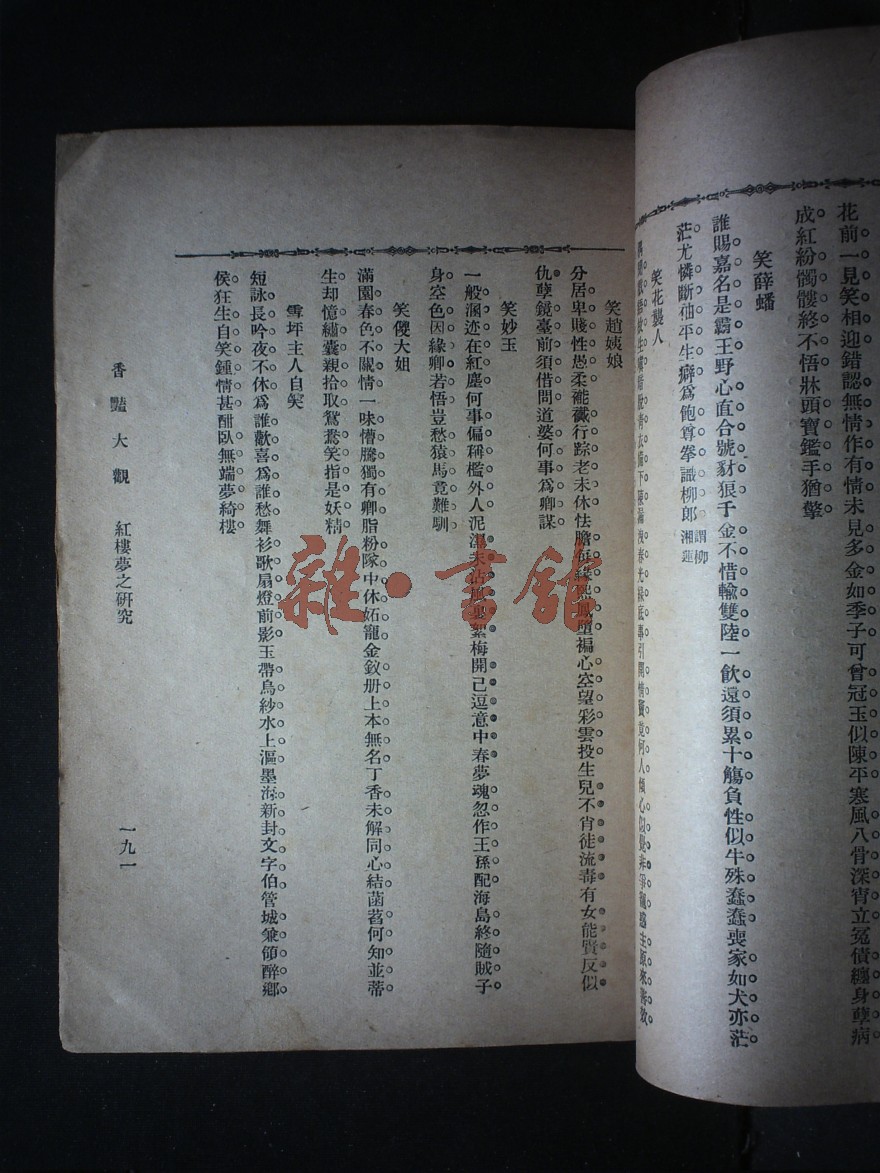 花前一見笑相迎錯認無情作有情未見多金如季子可曾冠玉似陳平寒風入骨深宵立冤債纏身孽病
成紅粉髑髏終不悟牀頭寶鑑手猶擎
笑薛蟠
誰賜嘉名是霸王野心直合號豺狼千金不惜輸雙陸一飲還須累十觴負性似牛殊蠢蠢喪家如犬亦茫
茫尤憐斷袖平生癖爲飽尊拳識柳郎謂柳湘蓮
笑花襲人
笑趙姨娘
分居卑賤性愚柔襤褸行踪老未休怯膽每緣熙鳳墮褊心空望彩雲投生兒不肖徒流毒有女能賢反似
仇孽鏡臺前須借問道婆何事爲卿謀
笑妙玉
一般溷迹在紅塵何事偏稱檻外人泥溷未沾風裏絮梅開已逗意中春夢魂忽作王孫配海島終隨賊子
身空色因緣卿若悟豈愁猿馬竟難馴
笑傻大姐
滿園春色不關情一味懵騰獨有卿脂粉隊中休妬寵金釵册上本無名丁香未解同心結菡萏何知並蒂
生却憶繡囊親拾取鴛鴦笑指是妖精
雪坪主人自笑
短詠長吟夜不休爲誰歡喜爲誰愁舞衫歌扇燈前影玉帶烏紗水上漚墨海新封文字伯管城兼領醉鄉
侯狂生自笑鍾情甚酣臥無端夢綺樓
香豔大觀 紅樓夢之研究
一九一
雜·書館